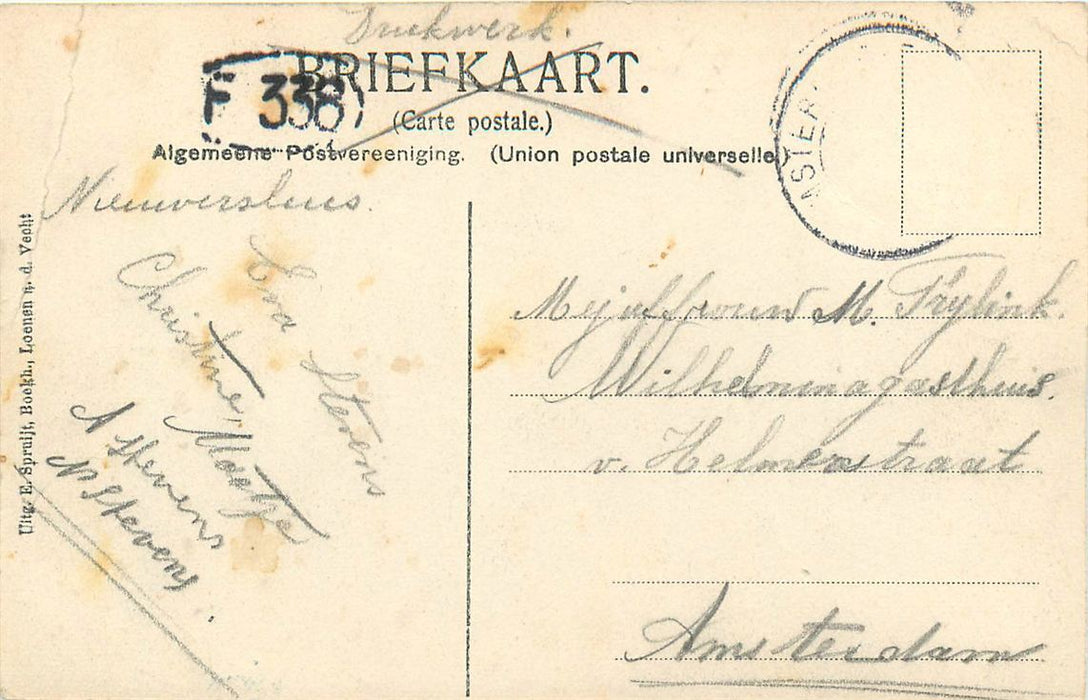 Drukwerk.
BRIEFKAART.
F 338
(Carte postale.)
Algemeene Postvereeniging. (Union postale universelle.)
ASTER
Nieuwersluis.
Eva Stevens
Christine Maatje
A Stevens
N. Stevens
Uitg. E. Spruijt, Boekh., Loenen a. d. Vecht
Mejuffrouw M. Frylink.
Wilhelminagasthuis.
v. Helmerstraat
Amsterdam